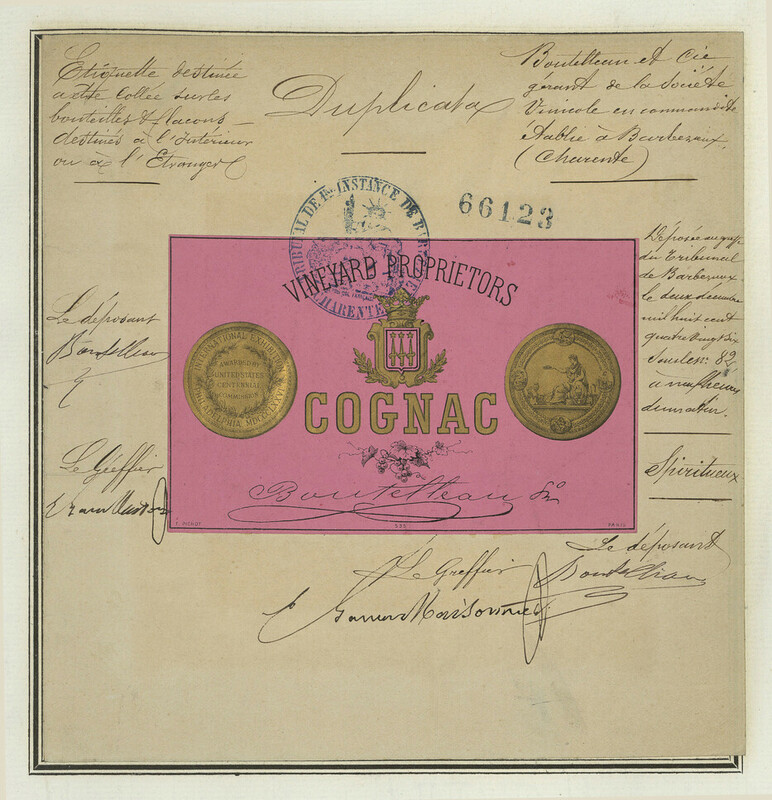 Etiquette destinée
a être collée sur les
bouteilles & flacons
destinés à l'Intérieur
ou à l'Etranger
Duplicata
Boutelleau et Cie
gérant de la Société
Vinicole en commandite
établie à Barbezieux
(Charente)
66123
TRIBUNAL DE 1re INSTANCE DE
CHARENTE
VINEYARD PROPRIETORS
INTERNATIONAL EXHIBITION
AWARDED BY
UNITED STATES
CENTENNIAL
COMMISSION
PHILADELPHIA MDCCCLXXVI
COGNAC
Boutelleau
F. PICHOT
PARIS
Déposée au greffe
du Tribunal
de Barbezieux
le deux décembre
mil huit cent
quatre vingt six
sous le n° 82
à neuf heures
du matin.
Spiritueux
Le déposant
Boutelleau
Le Greffier
Le Greffier
Le déposant
Boutelleau